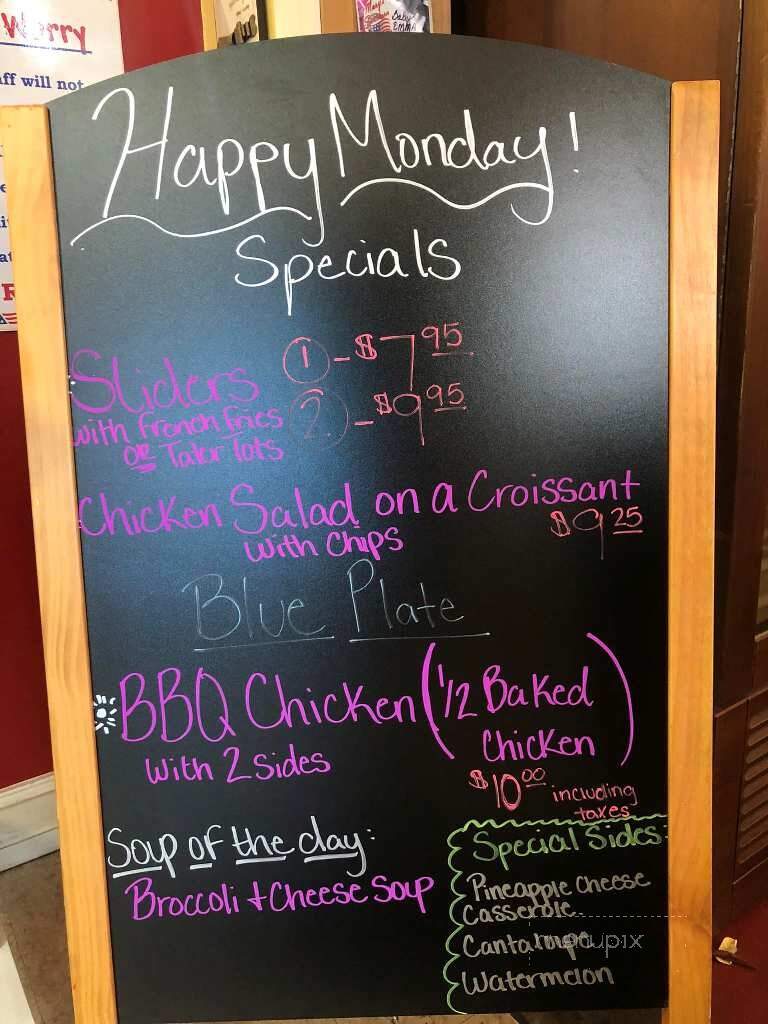 Worry
ff will not
Happy Monday!
Specials
Sliders
1 - $7.95
2 - $9.95
with French Fries
or Tator Tots
Chicken Salad on a Croissant
with Chips
$9.25
Blue Plate
BBQ Chicken (1/2 Baked
Chicken)
with 2 sides
$10.00 including
taxes
Soup of the day:
Broccoli + Cheese Soup
Special Sides:
Pineapple Cheese
Casserole
Cantalope
Watermelon
menupix